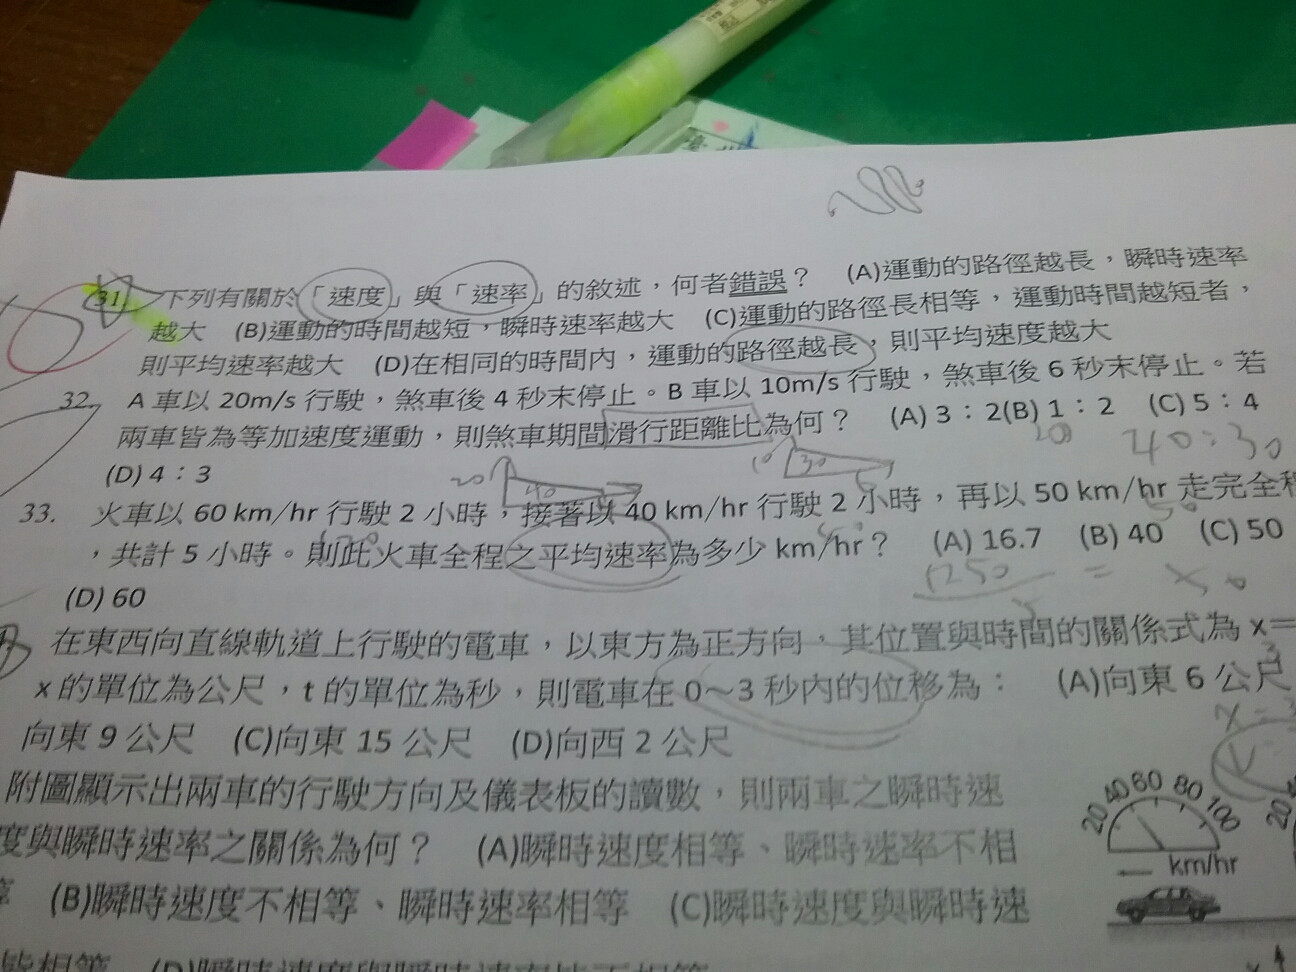 31. 下列有關於「速度」與「速率」的敘述，何者錯誤？ (A)運動的路徑越長，瞬時速率
越大 (B)運動的時間越短，瞬時速率越大 (C)運動的路徑長相等，運動時間越短者，
則平均速率越大 (D)在相同的時間內，運動的路徑越長，則平均速度越大
32. A 車以 20m/s 行駛，煞車後 4 秒末停止。B 車以 10m/s 行駛，煞車後 6 秒末停止。若
兩車皆為等加速度運動，則煞車期間滑行距離比為何？ (A) 3：2(B) 1：2 (C) 5：4
40:30
(D) 4：3
20 40
10 30 6
33. 火車以 60 km/hr 行駛 2 小時，接著以 40 km/hr 行駛 2 小時，再以 50 km/hr 走完全程
，共計 5 小時。則此火車全程之平均速率為多少 km/hr？ (A) 16.7 (B) 40 (C) 50
(D) 60
250 =
5
在東西向直線軌道上行駛的電車，以東方為正方向，其位置與時間的關係式為 x＝
x 的單位為公尺，t 的單位為秒，則電車在 0～3 秒內的位移為： (A)向東 6 公尺
向東 9 公尺 (C)向東 15 公尺 (D)向西 2 公尺
附圖顯示出兩車的行駛方向及儀表板的讀數，則兩車之瞬時速
度與瞬時速率之關係為何？ (A)瞬時速度相等、瞬時速率不相
等 (B)瞬時速度不相等、瞬時速率相等 (C)瞬時速度與瞬時速
皆相等 (D)瞬時速度與瞬時速率皆不相等
20 40 60 80 100
km/hr
20